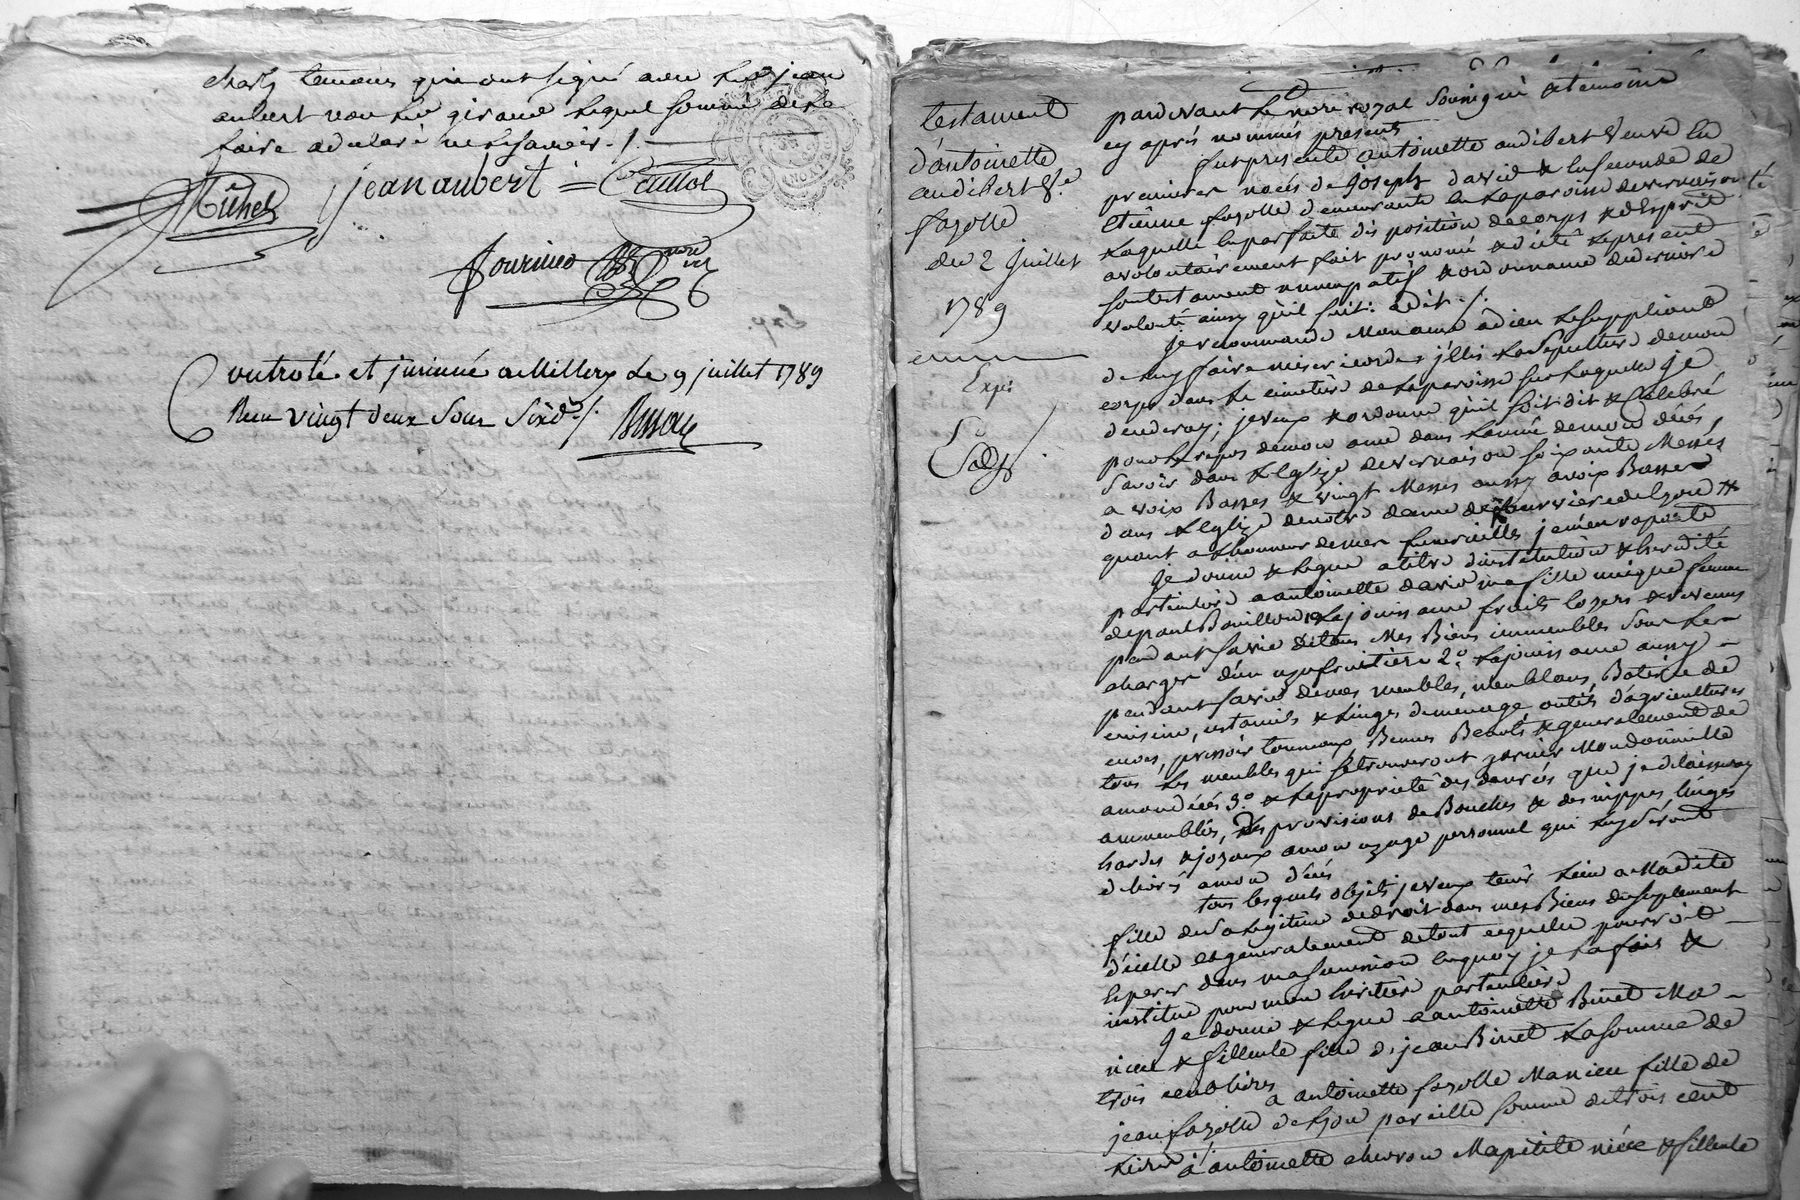 charly temoins qui ont signé avec led. jean
aubert non led. giraud lequel sommé de le
faire a declaré ne scavoir ./.
Michel jean aubert Caillot
fournier nore
Controlé et insinué a Millery le 9 juillet 1789
Reçu vingt deux sous six d. ./.
testament
d'antoinette
audibert Ve.
fazolle
du 2 juillet
1789
Exp.
pardevant le nore royal soussigné & temoins
cy après nommés presents
fut presente antoinette audibert veuve en
premieres noces de joseph david & en seconde de
Etienne fazolle demeurante en la paroisse de vernaison
laquelle en parfaite disposition de corps & d'esprit
a volontairement fait prononcé & dicté le present
son testament nuncupatif & ordonnance de derniere
volonté ainsy qu'il suit. a dit ./.
je recommande mon ame a dieu le suppliant
de luy faire misericorde j'élis la sepulture de mon
corps dans le cimetiere de la paroisse sur laquelle je
decederay; je veux & ordonne qu'il soit dit & Celebré
pour le repos de mon ame dans l'année de mon décés,
savoir dans l'Eglize de vernaison soixante Messes
a voix Basses & vingt Messes aussy a voix Basses
dans l'Eglize de notre dame de fourviere de lyon &
quant a l'honneur de mes funerailles je m'en raporte
je donne & legue a titre d'institution & heredité
particuliere a antoinette david ma fille unique femme
de paul Bouillon 1o. la jouissance fruits loyers & revenus
pendant sa vie de tous Mes Biens immeubles sous les
charges d'un uzufruitiere 2o. la jouissance aussy
pendant sa vie de mes meubles, meublans, Baterie de
cuisine, ustancils & linges de menage outils d'agriculture
cuves, pressoir tonneaux, Bennes Benots & generalement de
tous les meubles qui se trouveront garnir Mon domicille
a mon décés 3o. & la proprieté des denrées que je delaisseray
ammeublés, les provisions de Bouches & des nippes linges
hardes & joyaux a mon uzage personnel qui luy seront
delivrés a mon décés
tous lesquels objets je veux tenir lieu a Madite
fille de sa legitime de droit dans mes Biens du suplement
d'icelle & generalement de tout ce qu'elle pourroit
esperer dans ma succession en quoy je la fais &
institue pour mon héritiere particuliere
je donne & legue a antoinette Binet Ma
niece & filleule fille de jean Binet la somme de
trois cent livres
a antoinette fazolle Ma niece fille de
jean fazolle de lyon pareille somme de trois cent
livres ./.
a antoinette chevron Ma petite niece & filleule